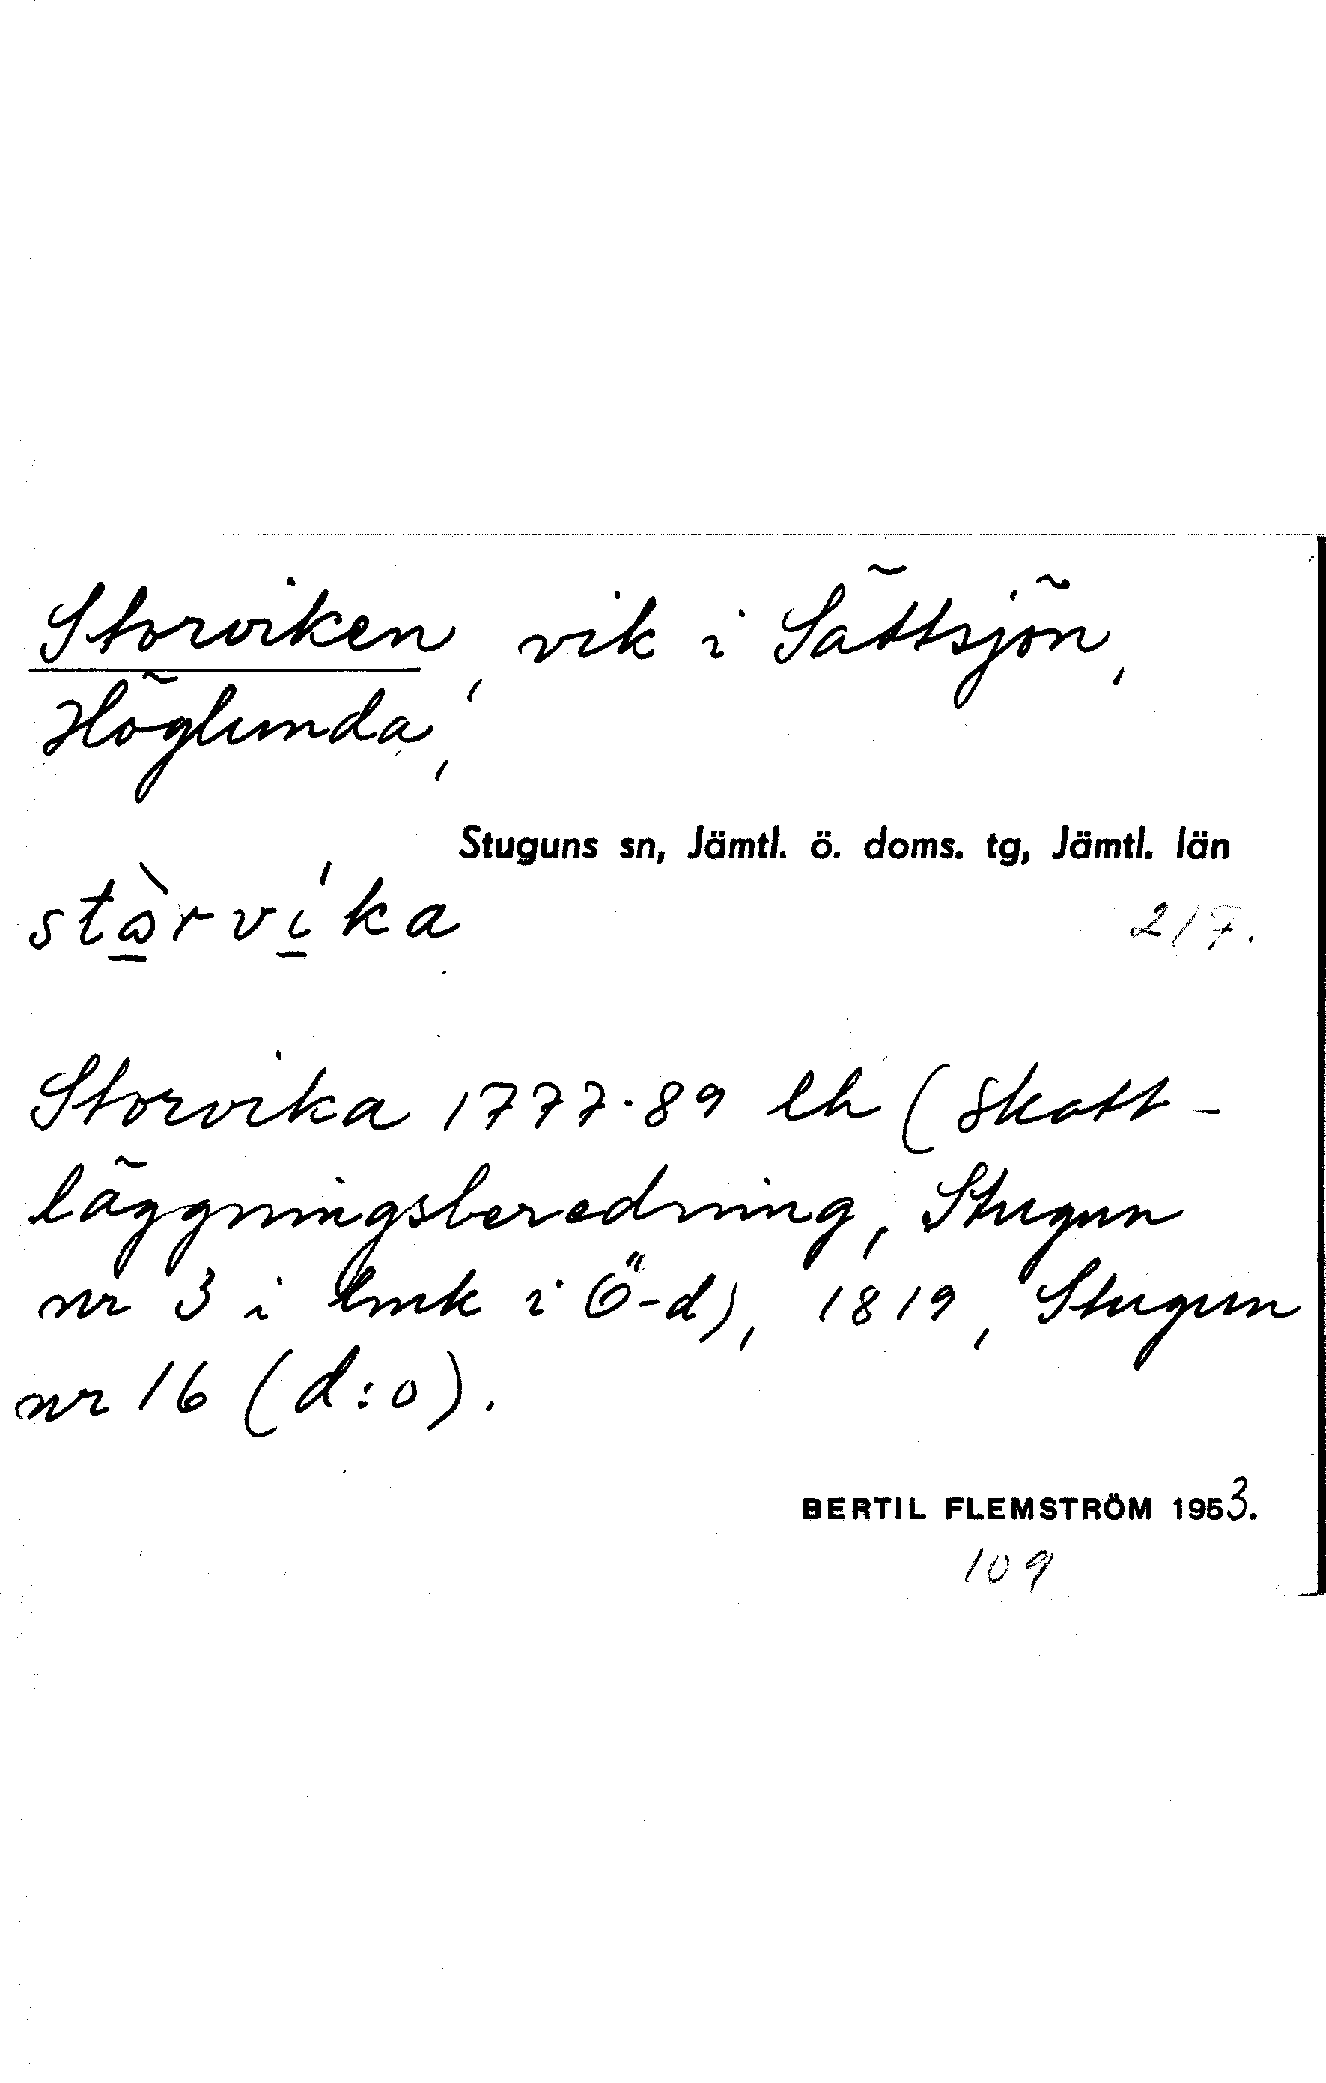 Storviken, vik i Sättsjön,
Höglunda,
Stuguns sn, Jämtl. ö. doms. tg, Jämtl. län
stⱥ̀rví̱ka
217.
Storvika 1777-89 lh (Skatt-
läggningsberedning, Stugun
nr 3 i lmk i Ö-d), 1819, Stugun
nr 16 (d:o).
BERTIL FLEMSTRÖM 1953.
109